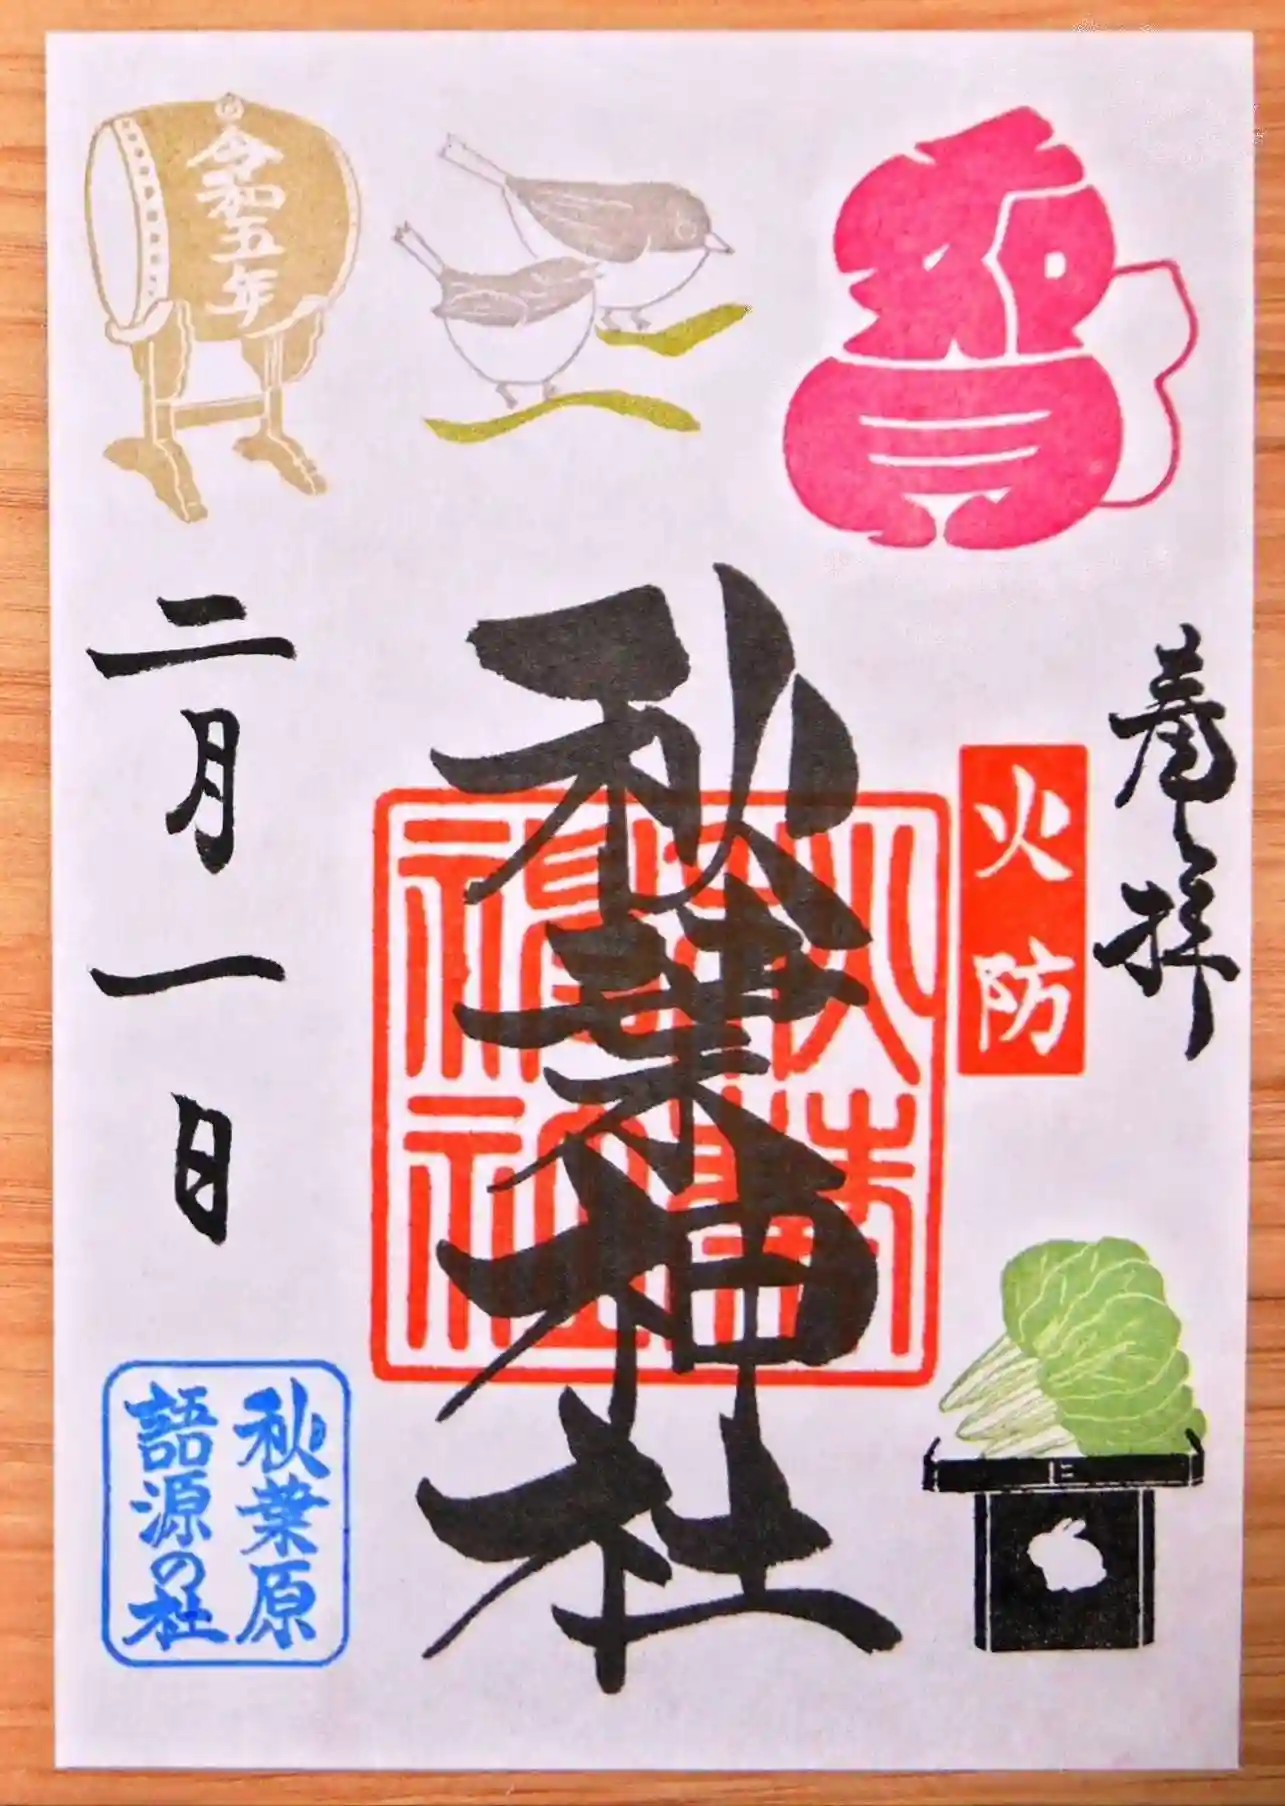 奉拝
火防
秋葉神社
秋葉
神社
令和五年
二月一日
秋葉原
語源の社